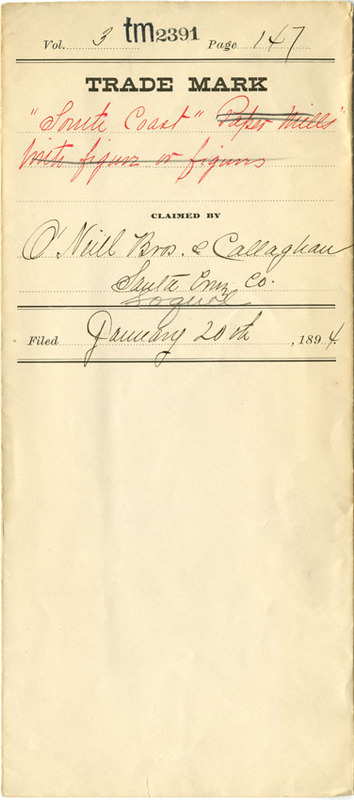 Vol. 3 tm2391 Page 147
TRADE MARK
"South Coast" Paper Mills"
with figure or figures
CLAIMED BY
O'Neill Bros. & Callaghan
Santa Cruz Co.
Soquel
Filed January 20th, 1894.